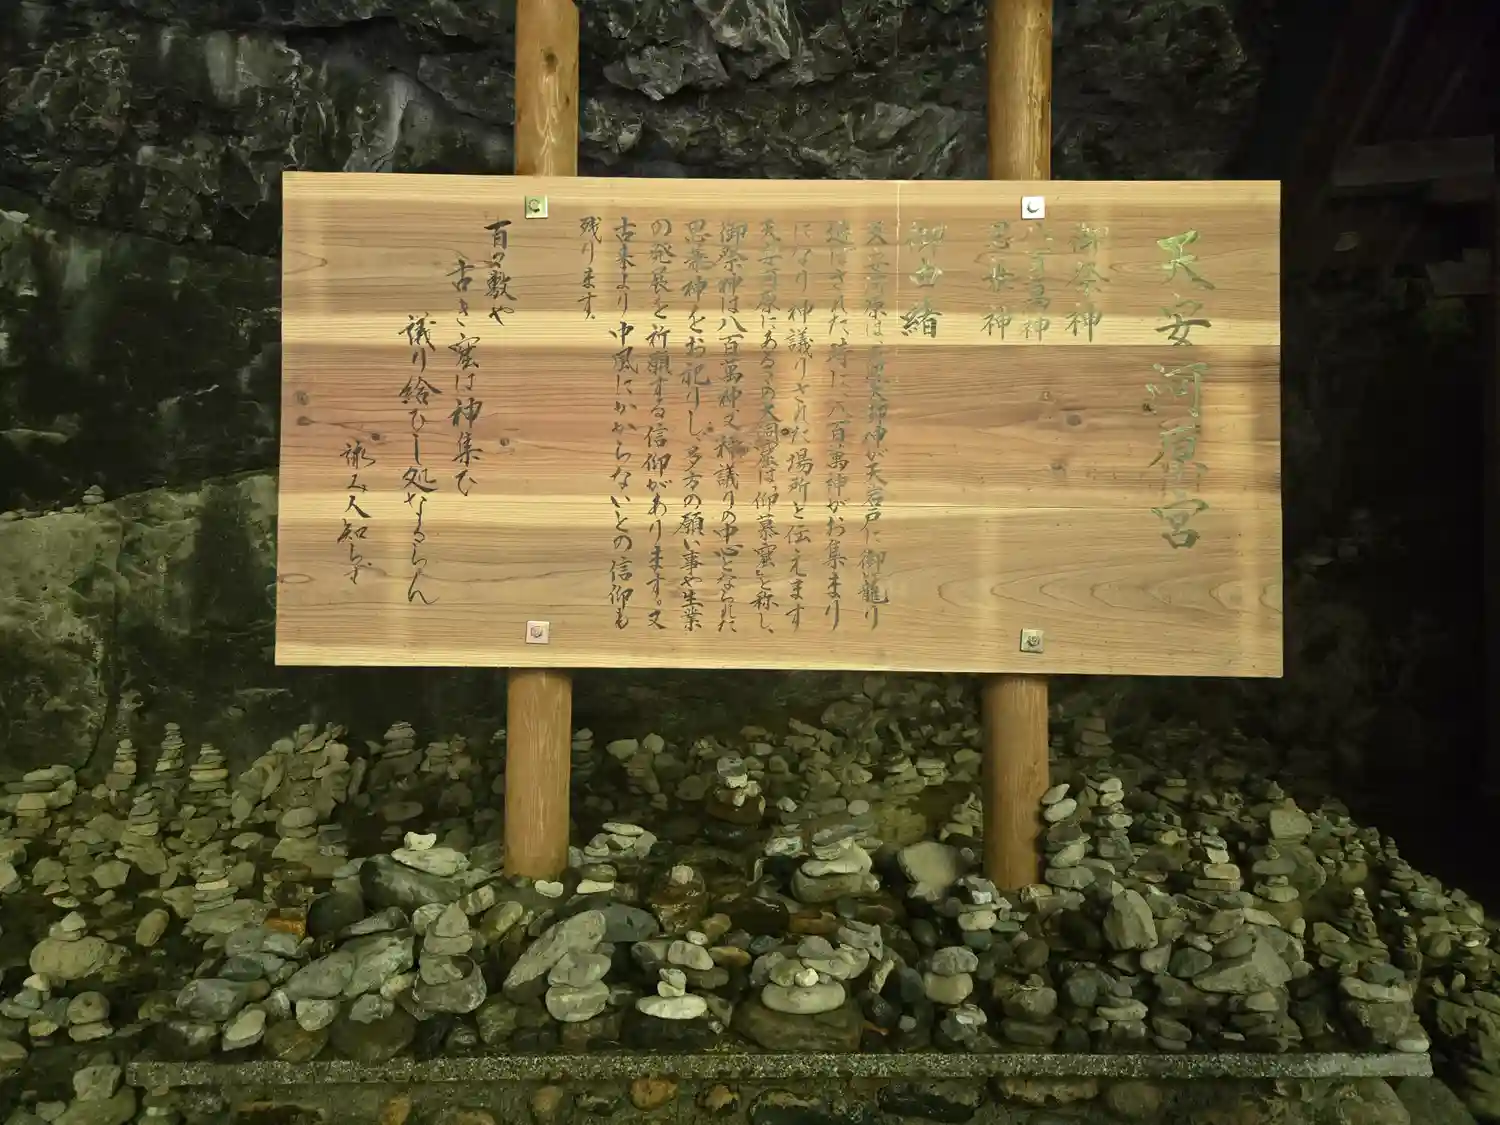 天安河原宮
御祭神
八百萬神
思兼神
御由緒
天安河原は、天照大御神が天岩戸に御籠り
遊ばされた時に、八百萬神がお集まり
になり神議りされた場所と伝えます
天安河原にあるこの大洞窟は、「仰慕窟」と称し、
御祭神は八百萬神又神議りの中心となられた
思兼神をお祀りし、多方の願い事や生業
の発展を祈願する信仰があります。又
古来より中風にかからないとの信仰も
残ります。
百々敷や
古き窟は神集ひ
議り給ひし処なるらん
詠み人知らず